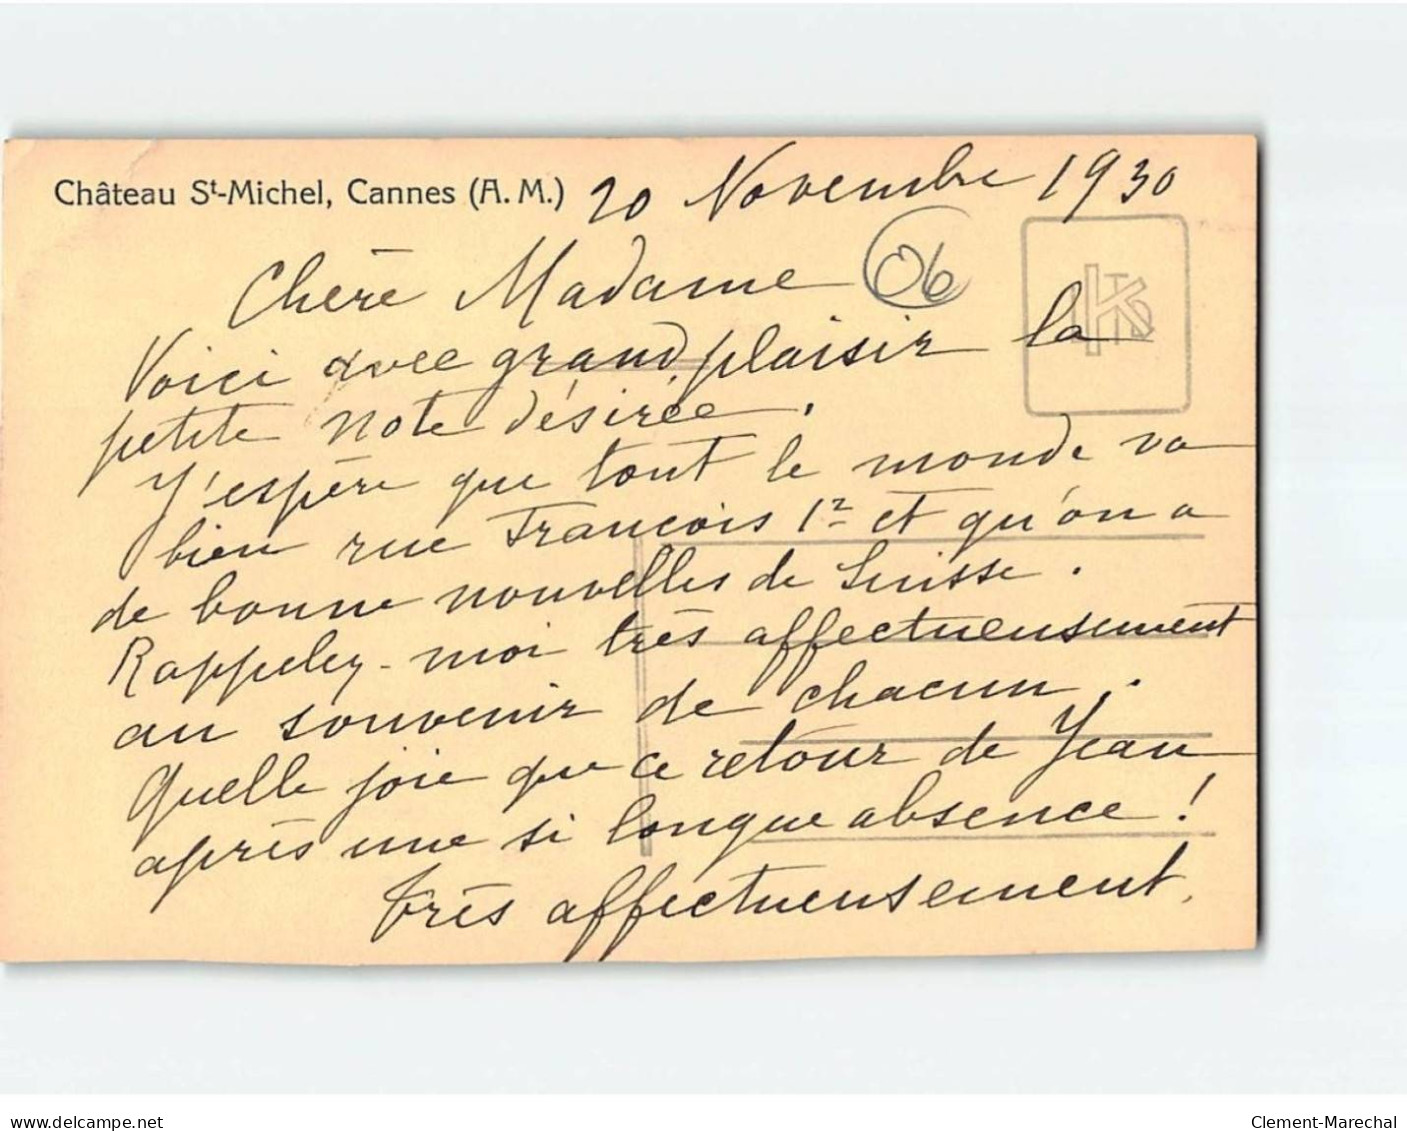 Château St-Michel, Cannes (A. M.)
20 Novembre 1930
06
Chère Madame
Voici avec grand plaisir la
petite note désirée.
J'espère que tout le monde va
bien rue François 1er et qu'on a
de bonne nouvelles de Suisse.
Rappelez-moi très affectueusement
au souvenir de chacun.
Quelle joie que ce retour de Jean
après une si longue absence !
Très affectueusement.
delcampe.net
Clement-Marechal